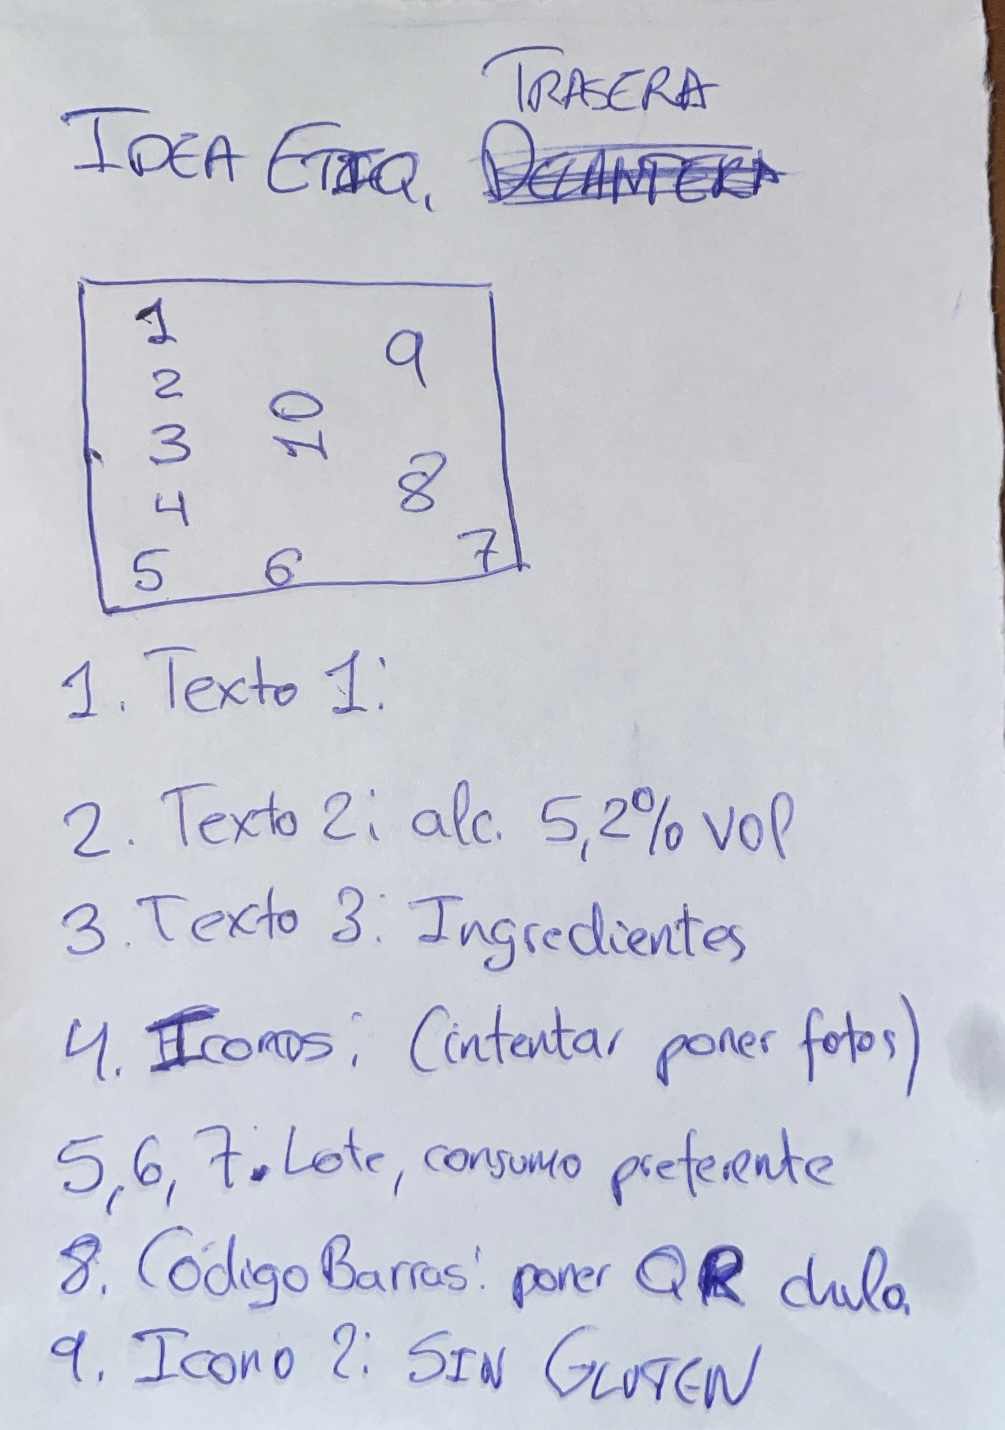 TRASERA
IDEA ETIQ. DELANTERA
1
9
2
10
3
8
4
7
5 6
1. Texto 1:
2. Texto 2: alc. 5,2% vol
3. Texto 3: Ingredientes
4. Iconos: (intentar poner fotos)
5,6,7. Lote, consumo preferente
8. Código Barras: poner QR chulo
9. Icono 2: SIN GLUTEN